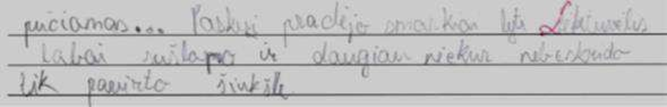 pučiamas... Paskui pradėjo smarkiai lyti Lietuvėlis
labai sušlapo ir daugiau niekur nebeskrido
tik pavirto šiukšle